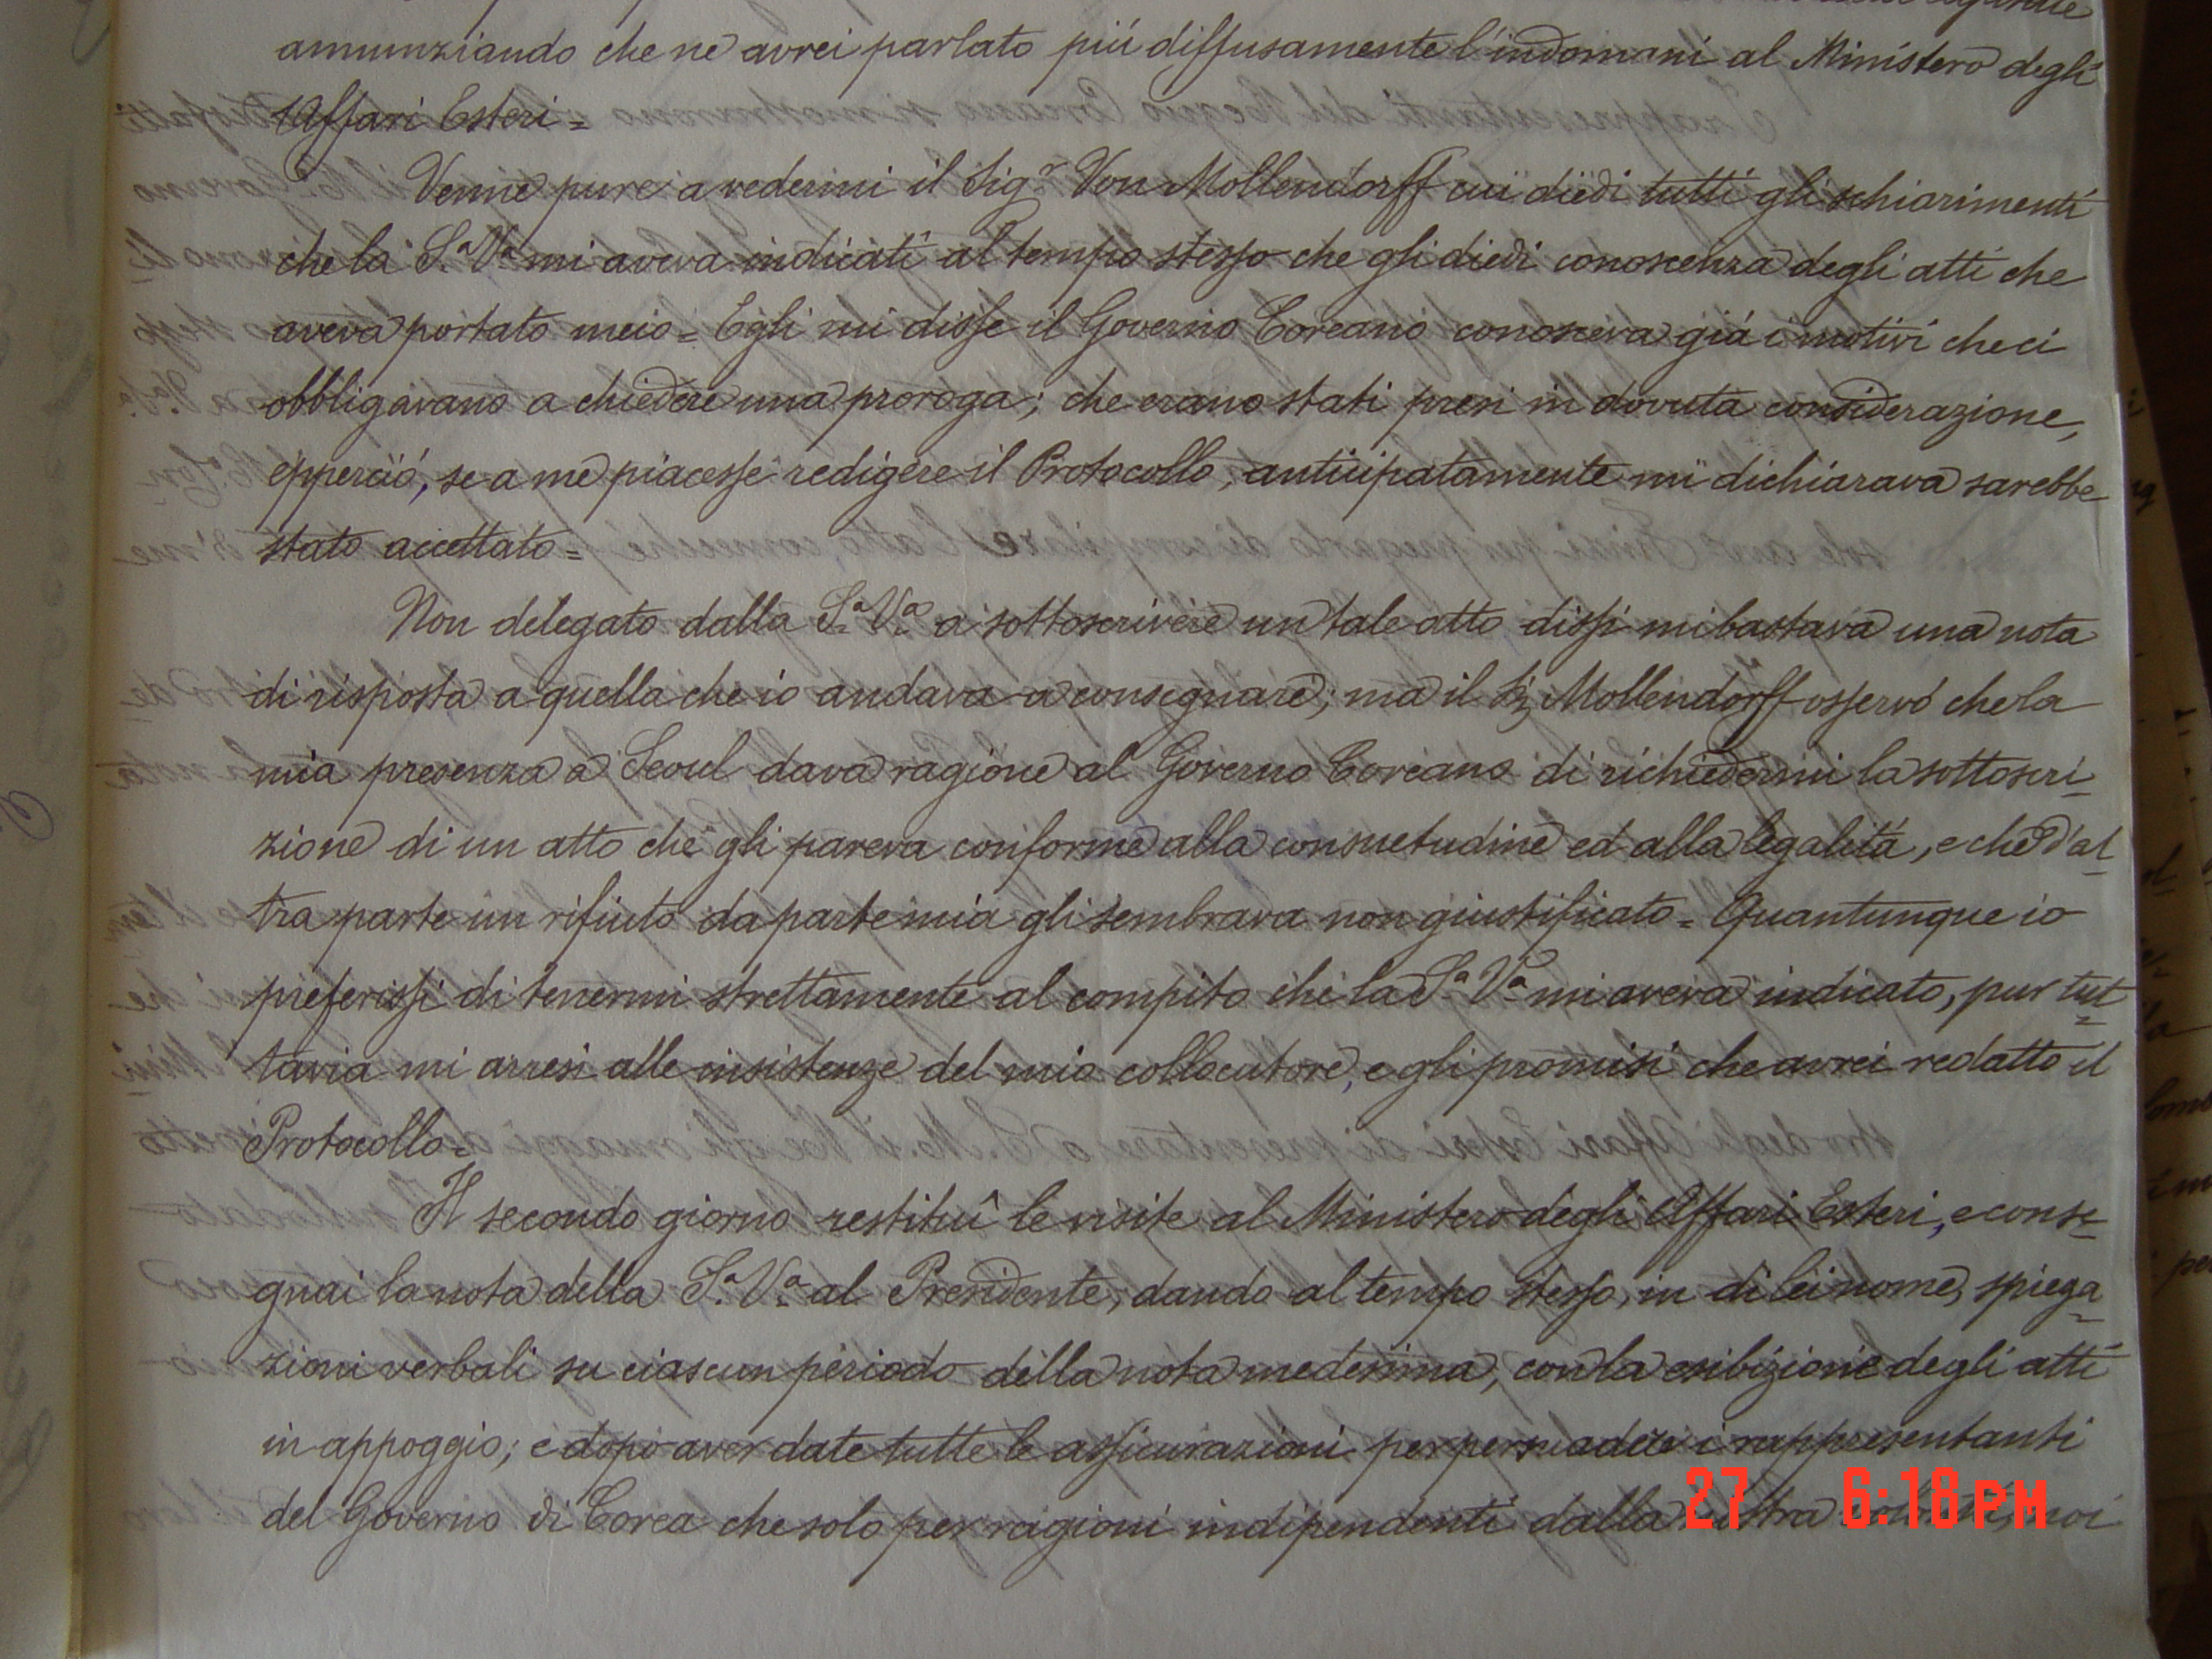 annunziando che ne avrei parlato piú diffusamente l'indomani al Ministero degli
Affari Esteri =
Venne pure a vedermi il Sig.r Von Mollendorff cui diedi tutti gli schiarimenti
che la S.a V.a mi aveva indicati al tempo stesso che gli diedi conoscenza degli atti che
aveva portato meco = Egli mi disse il Governo Coreano conosceva giá i motivi che ci
obbligavano a chiedere una proroga; che erano stati presi in dovuta considerazione,
epperció, se a me piacesse redigere il Protocollo, anticipatamente mi dichiarava sarebbe
stato accettato =
Non delegato dalla S.a V.a a sottoscrivere un tale atto dissi mi bastava una nota
di risposta a quella che io andava a consegnare; ma il Sig Mollendorff osservó che la
mia presenza a Seoul dava ragione al Governo Coreano di richiedermi la sottoscri-
zione di un atto che gli pareva conforme alla consuetudine ed alla legalitá, e che d'al-
tra parte un rifiuto da parte mia gli sembrava non giustificato = Quantunque io
preferissi di tenermi strettamente al compito che la S.a V.a mi aveva indicato, pur tut=
tavia mi arresi alle insistenze del mio collocutore, e gli promisi che avrei redatto il
Protocollo =
Il secondo giorno restituî le visite al Ministero degli Affari Esteri, e conse=
gnai la nota della S.a V.a al Presidente, dando al tempo stesso, in di lei nome, spiega=
zioni verbali su ciascun periodo della nota medesima, con la esibizione degli atti
in appoggio; e dopo aver date tutte le assicurazioni per persuadere i rappresentanti
del Governo di Corea che solo per ragioni indipendenti dalla nostra volontá, noi
27 6:18PM